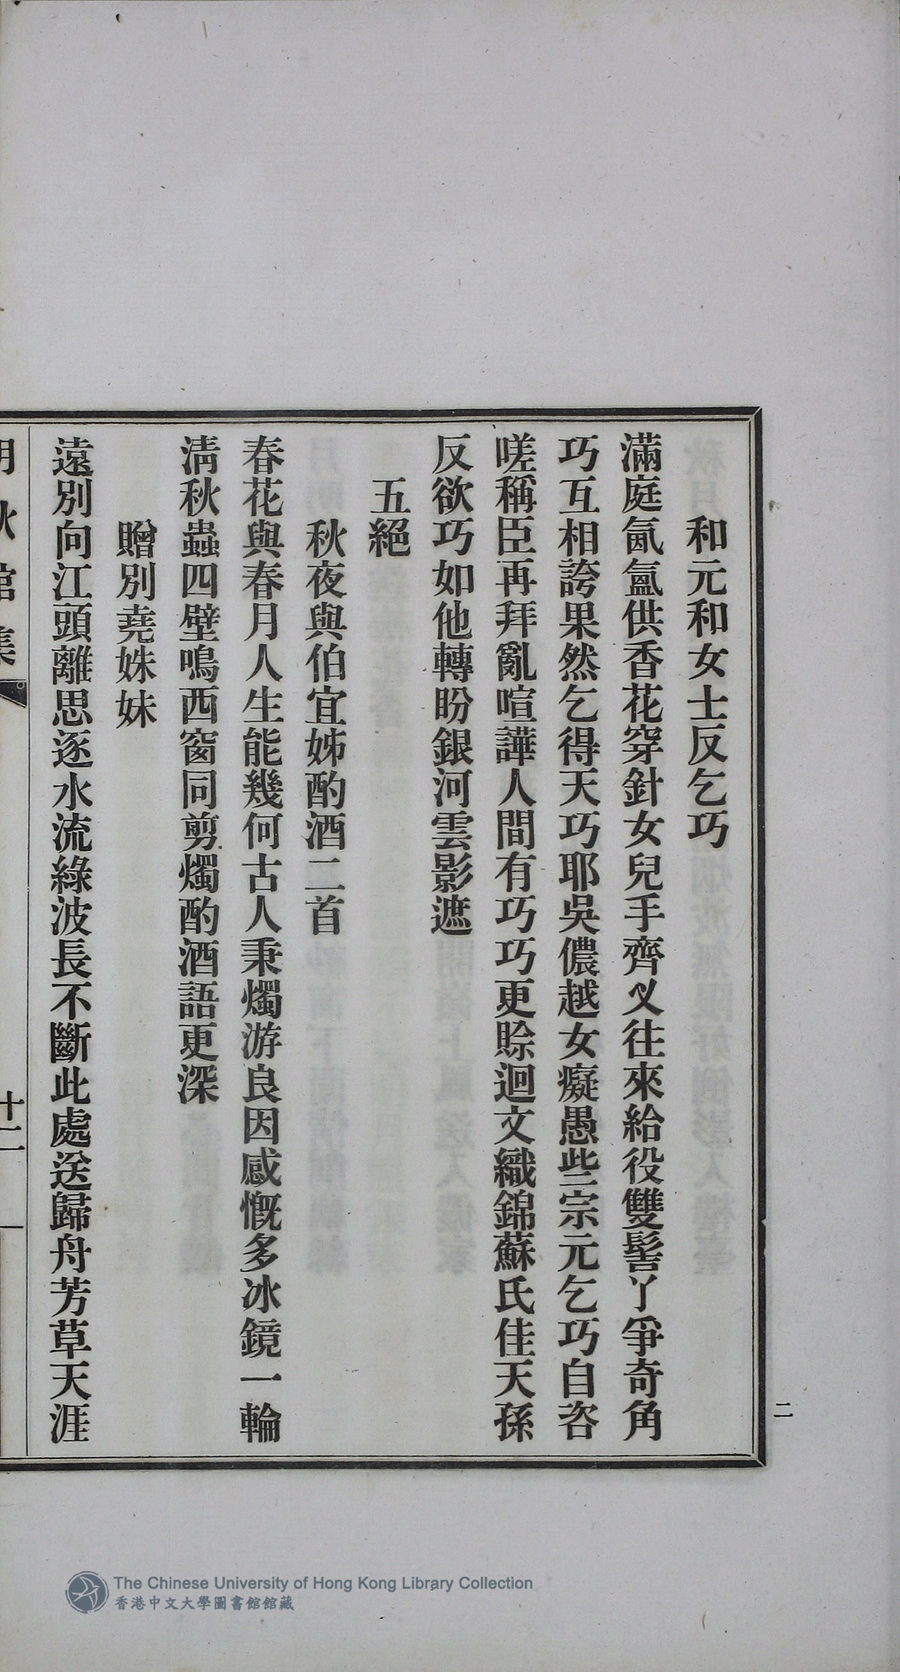 和元和女士反乞巧
滿庭氤氳供香花穿針女兒手齊叉往來給役雙髻丫爭奇角
巧互相誇果然乞得天巧耶吳儂越女癡愚些宗元乞巧自咨
嗟稱臣再拜亂喧譁人間有巧巧更賒迴文織錦蘇氏佳天孫
反欲巧如他轉盼銀河雲影遮
五絕
秋夜與伯宜姊酌酒二首
春花與春月人生能幾何古人秉燭游良因感慨多冰鏡一輪
淸秋蟲四壁鳴西窗同剪燭酌酒語更深
贈別堯姝妹
遠別向江頭離思逐水流綠波長不斷此處送歸舟芳草天涯
秋館集 十二
二
The Chinese University of Hong Kong Library Collection
香港中文大學圖書館館藏